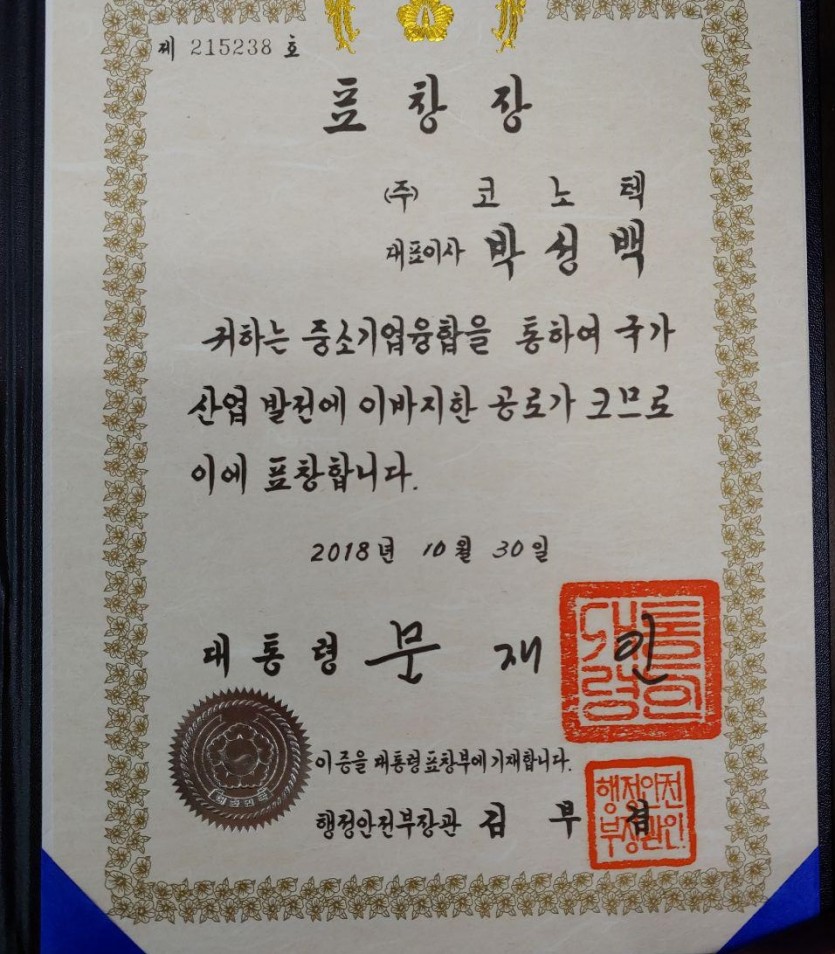 제 215238 호
표창장
(주) 코노텍
대표이사 박성백
귀하는 중소기업융합을 통하여 국가
산업 발전에 이바지한 공로가 크므로
이에 표창합니다.
2018년 10월 30일
대통령 문재인
대통령의인
이 증을 대통령표창부에 기재합니다.
행정안전부장관 김부겸
행정안전
부장관인